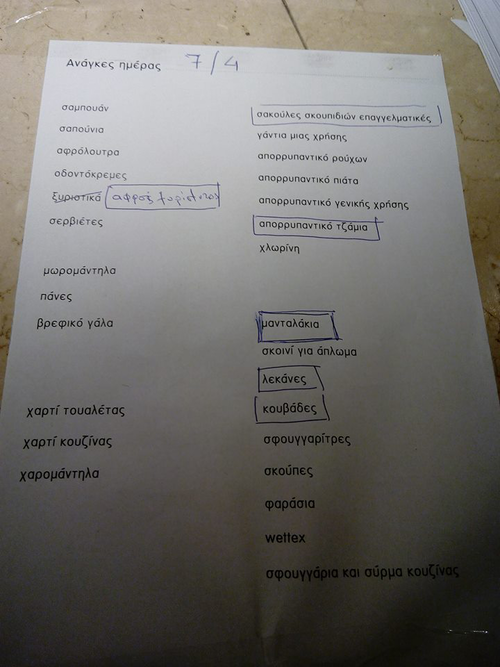 Ανάγκες ημέρας 7/4
σαμπουάν
σαπούνια
αφρόλουτρα
οδοντόκρεμες
ξυριστικά αφροί ξυρίσματος
σερβιέτες
μωρομάντηλα
πάνες
βρεφικό γάλα
χαρτί τουαλέτας
χαρτί κουζίνας
χαρομάντηλα
σακούλες σκουπιδιών επαγγελματικές
γάντια μιας χρήσης
απορρυπαντικό ρούχων
απορρυπαντικό πιάτα
απορρυπαντικό γενικής χρήσης
απορρυπαντικό τζάμια
χλωρίνη
μανταλάκια
σκοινί για άπλωμα
λεκάνες
κουβάδες
σφουγγαρίτρες
σκούπες
φαράσια
wettex
σφουγγάρια και σύρμα κουζίνας